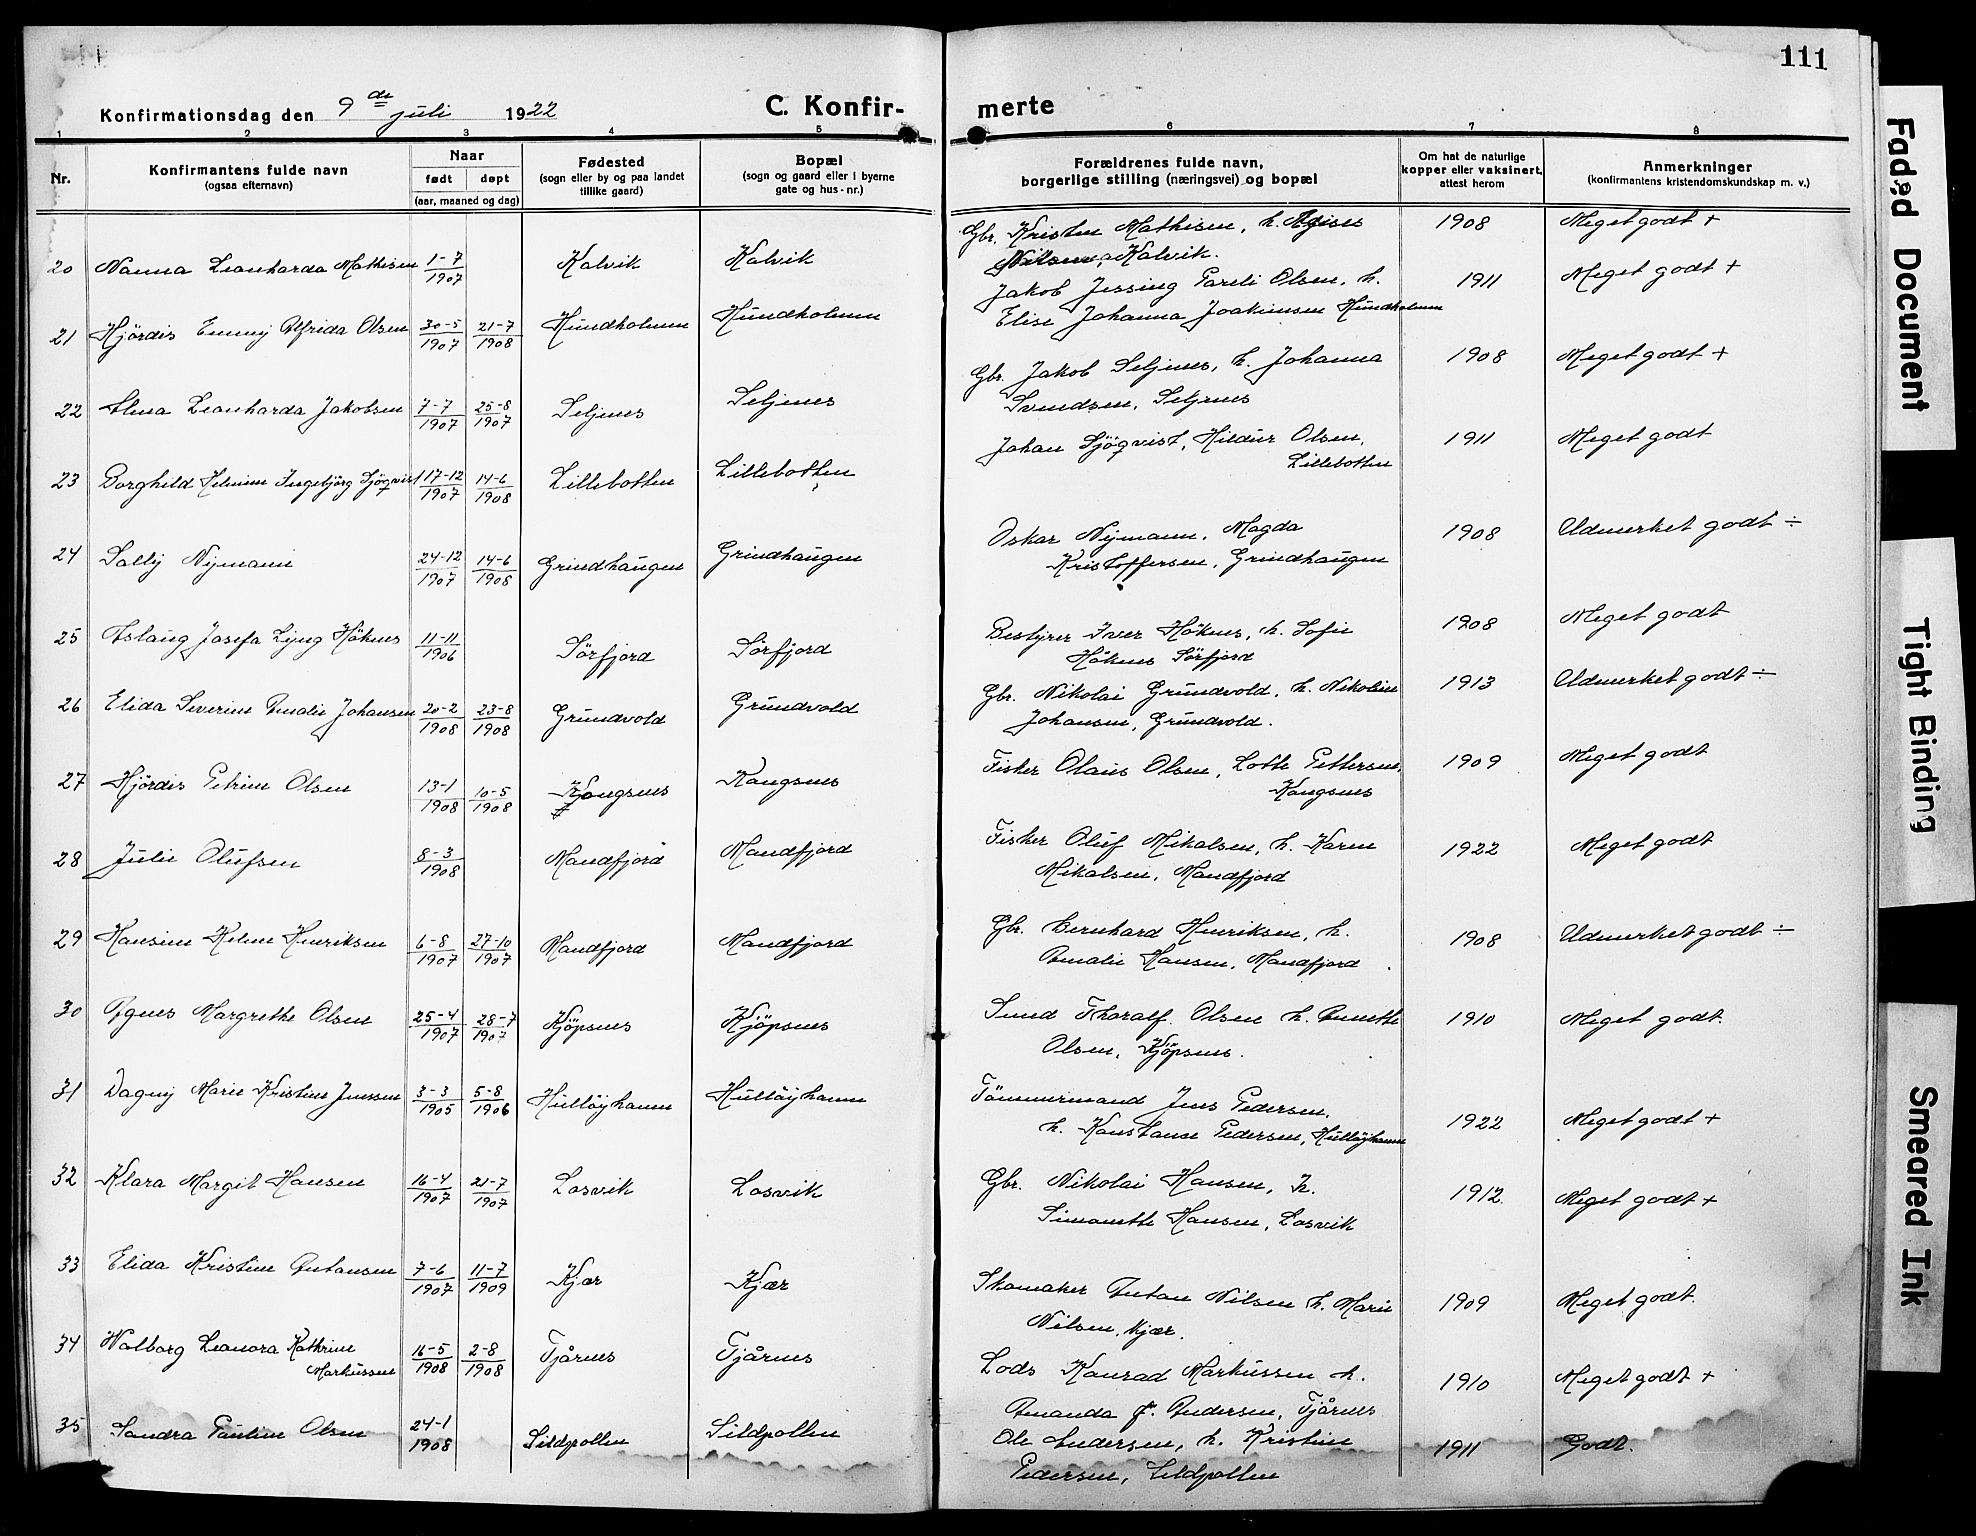 111
Konfirmationsdag den 9 de juli 1922 C. Konfir- merte
1 2 3 4 5 6 7 8
Nr. Konfirmantens fulde navn (ogsaa efternavn) Naar født døpt (aar, maaned og dag) Fødested (sogn eller by og paa landet tillike gaard) Bopæl (sogn og gaard eller i byerne gate og hus-nr.) Forældrenes fulde navn, borgerlige stilling (næringsvei) og bopæl Om hat de naturlige kopper eller vaksinert, attest herom Anmerkninger (konfirmantens kristendomskundskap m. v.)
20 Nanna Leonharda Mathisen 1-7 1907 Kalvik Kalvik Gbr. Kristen Mathisen, h. Agnes 1908 Meget godt +
Nilsen, Kalvik.
21 Hjördis Emmy Alfrida Olsen 30-5 1907 21-7 1908 Hundholmen Hundholmen Jakob Jessing Pareli Olsen, h. 1911 Meget godt +
Elise Johanna Joakimsen Hundholmen
22 Alma Leonharda Jakobsen 7-7 1907 25-8 1907 Seljenes Seljenes Gbr. Jakob Seljenes, h. Johanna 1908 Meget godt +
Svendsen, Seljenes
23 Borghild Helmine Ingebjörg Sjöqvist 17-12 1907 14-6 1908 Lillebotten Lillebotten Johan Sjöqvist, Hildur Olsen, 1911 Meget godt
Lillebotten
24 Sally Nymann 24-12 1907 14-6 1908 Grindhaugen Grindhaugen Oskar Nymann, Magda 1908 Udmerket godt ÷
Kristoffersen, Grindhaugen
25 Aslaug Josefa Lyng Höknes 11-11 1906 Sörfjord Sörfjord Bestyrer Iver Höknes, h. Sofie 1908 Meget godt
Höknes Sörfjord
26 Elida Severine Amalie Johansen 20-2 1908 23-8 1908 Grundvold Grundvold Gbr. Nikolai Grundvold, h. Nikoline 1913 Udmerket godt ÷
Johansen, Grundvold.
27 Hjördis Petrine Olsen 13-1 1908 10-5 1908 Kongsnes Kongsnes Fisker Olaus Olsen, Lotte Pettersen, 1909 Meget godt
Kongsnes
28 Julie Olufsen 8-3 1908 Mandfjord Mandfjord Fisker Oluf Mikalsen, h. Karen 1922 Meget godt
Mikalsen, Mandfjord
29 Hansine Helene Henriksen 6-8 1907 27-10 1907 Mandfjord Mandfjord Gbr. Bernhard Henriksen, h. 1908 Udmerket godt ÷
Amalie Hansen, Mandfjord
30 Agnes Margrethe Olsen 25-4 1907 28-7 1907 Kjöpsnes Kjöpsnes Smed Thoralf Olsen h. Anette 1910 Meget godt.
Olsen, Kjöpsnes.
31 Dagny Marie Kristine Jenssen 3-3 1905 5-8 1906 Hulløyhamn Hulløyhamn Tömmermand Jens Pedersen, 1922 Meget godt +
h. Konstanse Pedersen, Hulløyhamn
32 Klara Margit Hansen 16-4 1907 21-7 1907 Losvik Losvik Gbr. Nikolai Hansen, h. 1912. Meget godt +
Simonette Hansen, Losvik
33 Elida Kristine Antonsen 7-6 1907 11-7 1909 Kjær Kjær Skomaker Anton Nilsen h. Marie 1909 Meget godt.
Nilsen, Kjær.
34 Walborg Leonora Kathrine 16-5 1908 2-8 1908 Tjårnes Tjårnes Lods Konrad Markussen h. 1910 Meget godt +
Markussen Amanda J. Andersen, Tjårnes
35 Sandra Pauline Olsen 24-1 1908 Sildpollen Sildpollen Ole Andersen, h. Kristine 1911 Godt.
Pedersen, Sildpollen
Faded Document
Tight Binding
Smeared Ink